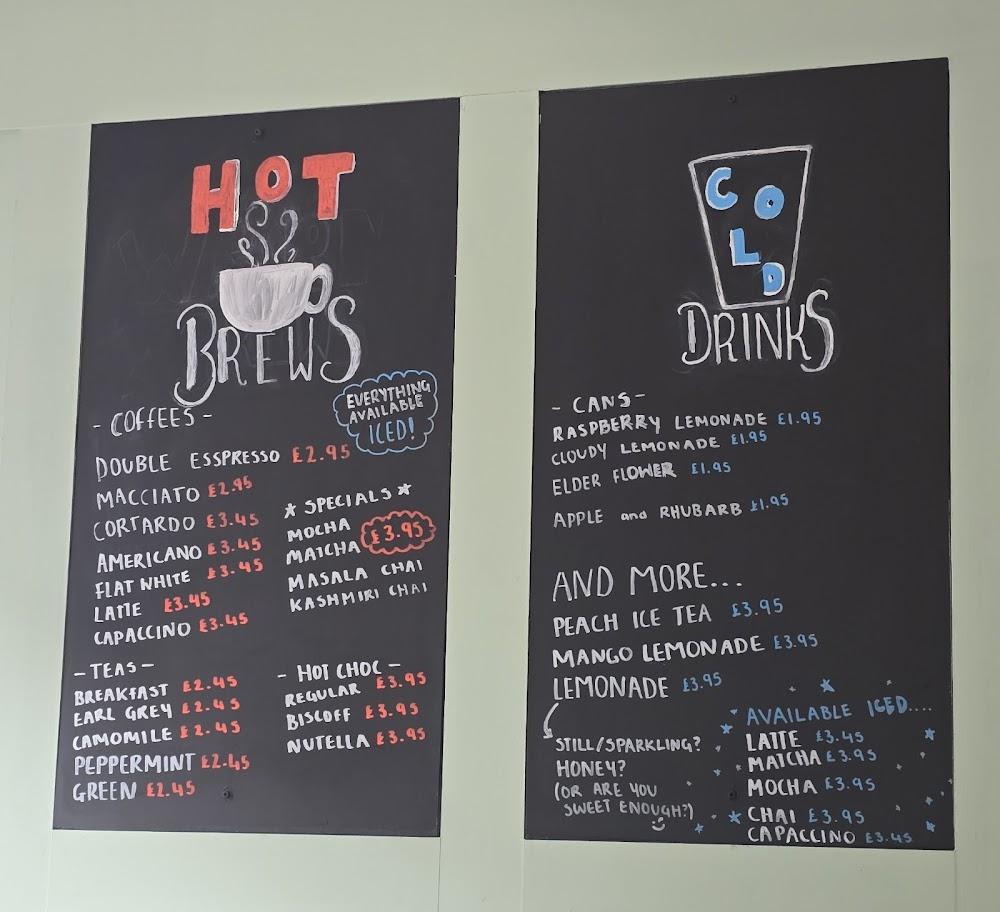 HOT
BREWS
- COFFEES -
EVERYTHING
AVAILABLE
ICED!
DOUBLE ESSPRESSO £2.95
MACCIATO £2.95
CORTARDO £3.45
AMERICANO £3.45
FLAT WHITE £3.45
LATTE £3.45
CAPACCINO £3.45
★ SPECIALS ★
MOCHA
MATCHA £3.95
MASALA CHAI
KASHMIRI CHAI
- TEAS -
BREAKFAST £2.45
EARL GREY £2.45
CAMOMILE £2.45
PEPPERMINT £2.45
GREEN £2.45
- HOT CHOC -
REGULAR £3.95
BISCOFF £3.95
NUTELLA £3.95
COLD
DRINKS
- CANS -
RASPBERRY LEMONADE £1.95
CLOUDY LEMONADE £1.95
ELDER FLOWER £1.95
APPLE and RHUBARB £1.95
AND MORE...
PEACH ICE TEA £3.95
MANGO LEMONADE £3.95
LEMONADE £3.95
STILL/SPARKLING?
HONEY?
(OR ARE YOU
SWEET ENOUGH?)
AVAILABLE ICED....
LATTE £3.45
MATCHA £3.95
MOCHA £3.95
CHAI £3.95
CAPACCINO £3.45